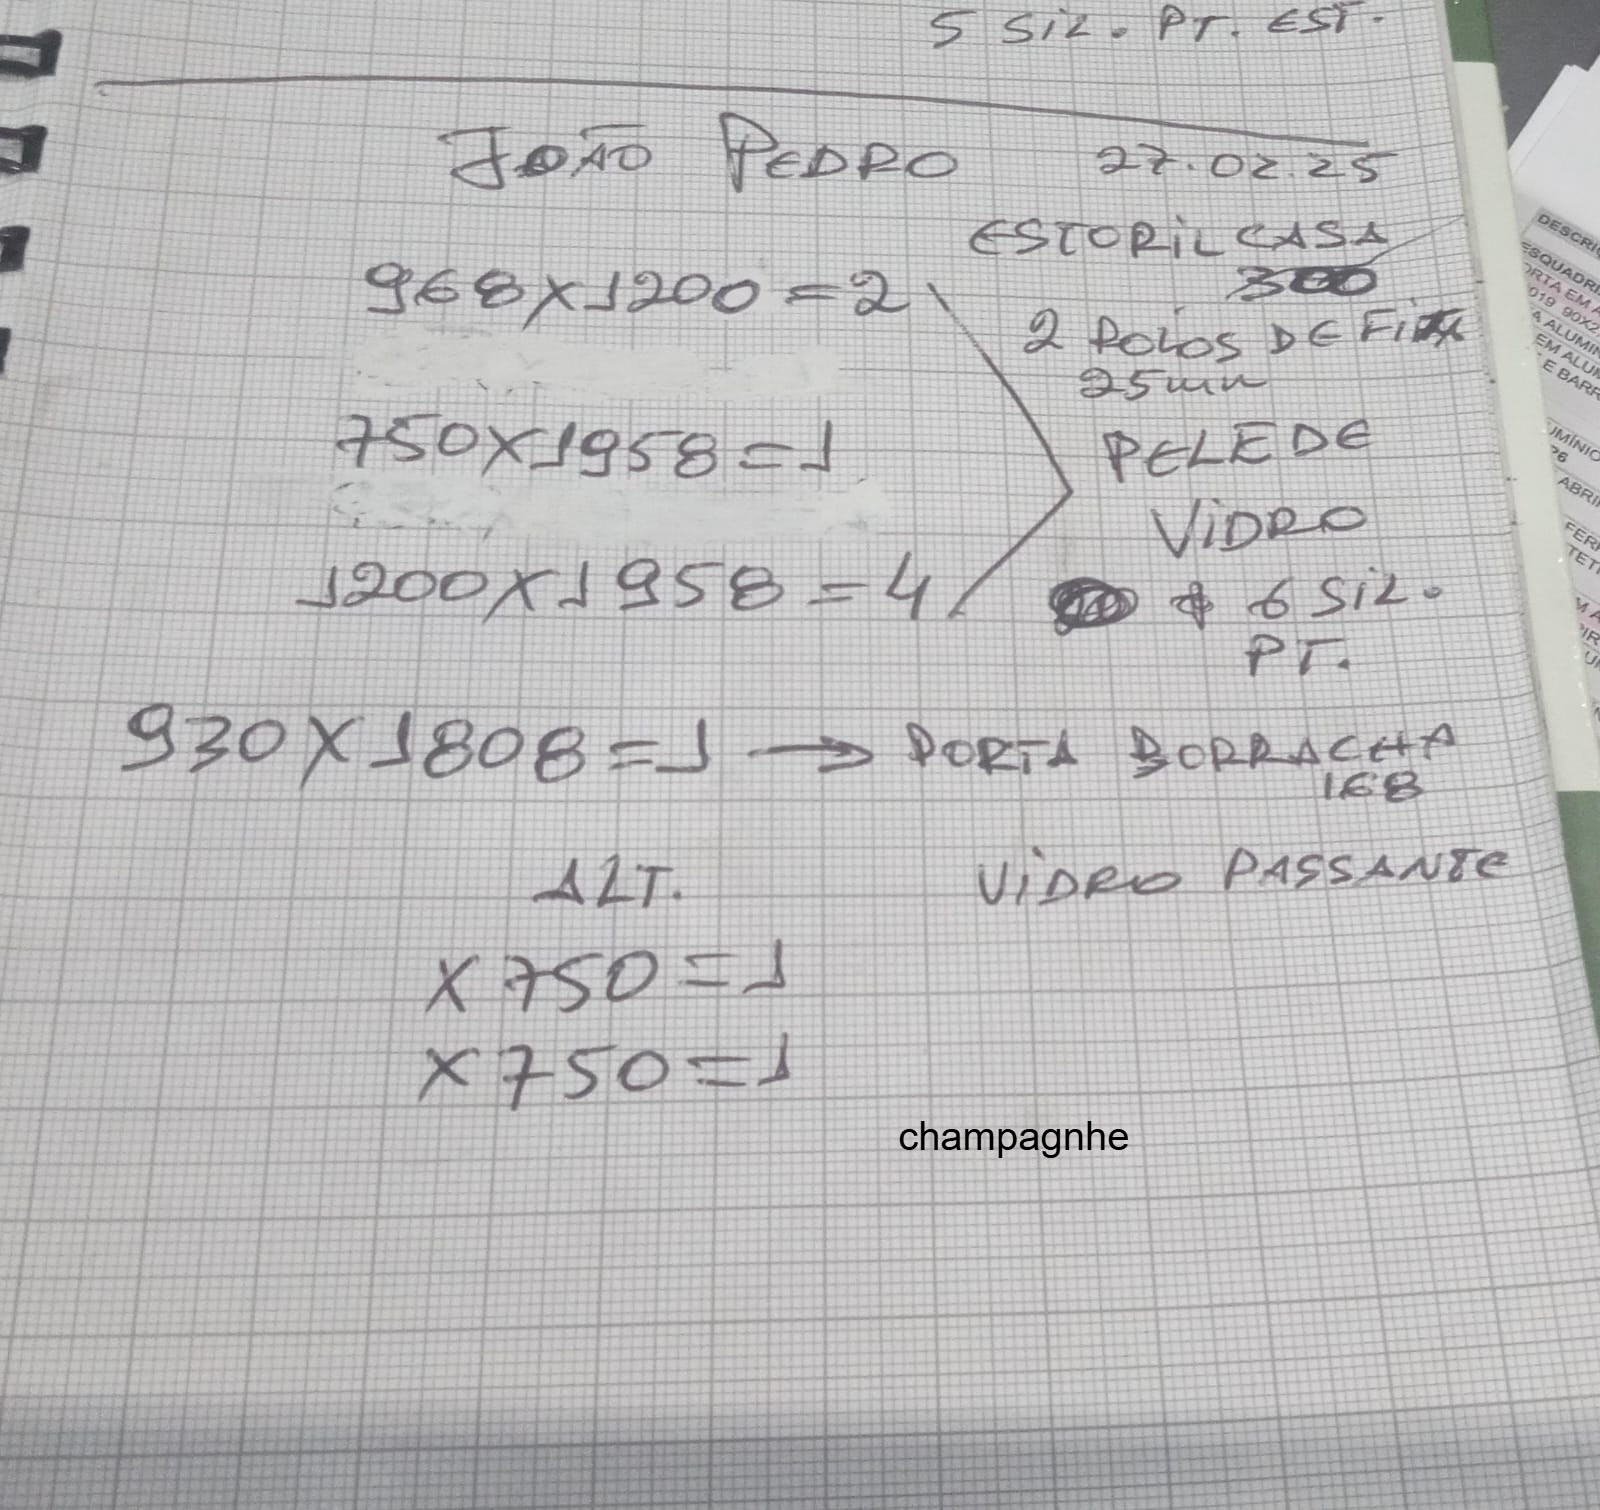 5 SIL. PT. EST.
JOÃO PEDRO 27.02.25
ESTORIL CASA
300
968X1200=2
2 ROLOS DE FITA
25mm
750X1958=1
PELE DE
VIDRO
1200X1958=4
6 SIL.
PT.
930X1808=1 → PORTA BORRACHA
168
ALT. VIDRO PASSANTE
X 750=1
X 750=1
champagnhe
DESCRI
ESQUADRI
PORTA EM A
019 90X2
A ALUMIN
EM ALUM
E BARR
UMÍNIO
P6
ABRI
FERR
TETI